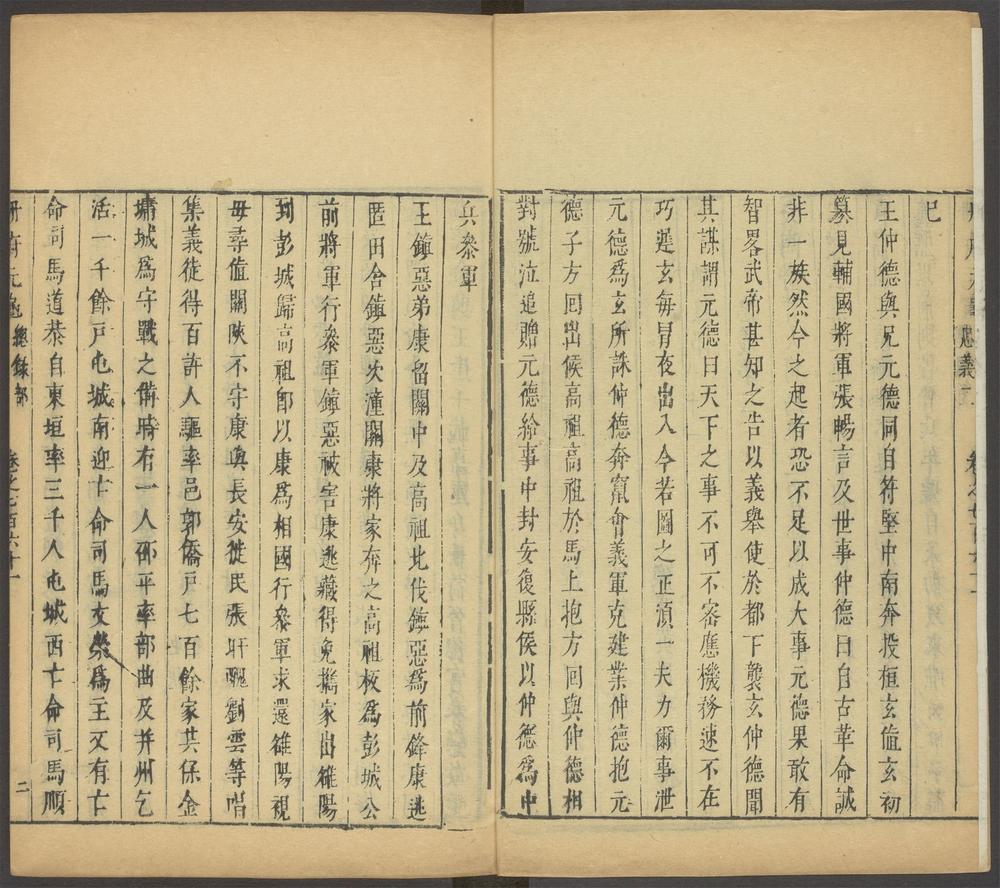 忠義二
巳
王仲德與兄元德同自符堅中南奔投桓玄值玄初
篡見輔國將軍張暢言及世事仲德曰自古革命誠
非一族然今之起者恐不足以成大事元德果敢有
智畧武帝甚知之告以義舉使於都下襲玄仲德聞
其謀謂元德曰天下之事不可不密應機務速不在
巧遲玄每冐夜出入今若圖之正湏一夫力爾事泄
元德爲玄所誅仲德奔竄會義軍克建業仲德抱元
德子方回出候高祖高祖於馬上抱方回與仲德相
對號泣追贈元德給事中封安復縣侯以仲德爲中
兵叅軍
王鎮惡弟康留關中及高祖北伐鎮惡爲前鋒康逃
匿田舍鎮惡次潼關康將家奔之高祖板爲彭城公
前將軍行叅軍鎮惡被害康逃藏得免攜家出雒陽
到彭城歸高祖卽以康爲相國行叅軍求還雒陽視
母尋值關陜不守康與長安徙民張旰醜劉雲等唱
集義徒得百許人驅率邑郭僑戶七百餘家共保金
墉城爲守戰之備時有一人邵平率部曲及并州乞
活一千餘戶屯城南迎亡命司馬文榮爲主又有亡
命司馬道恭自東垣率三千人屯城西亡命司馬順
冊府元龜 總錄部 卷之七百六十一 二